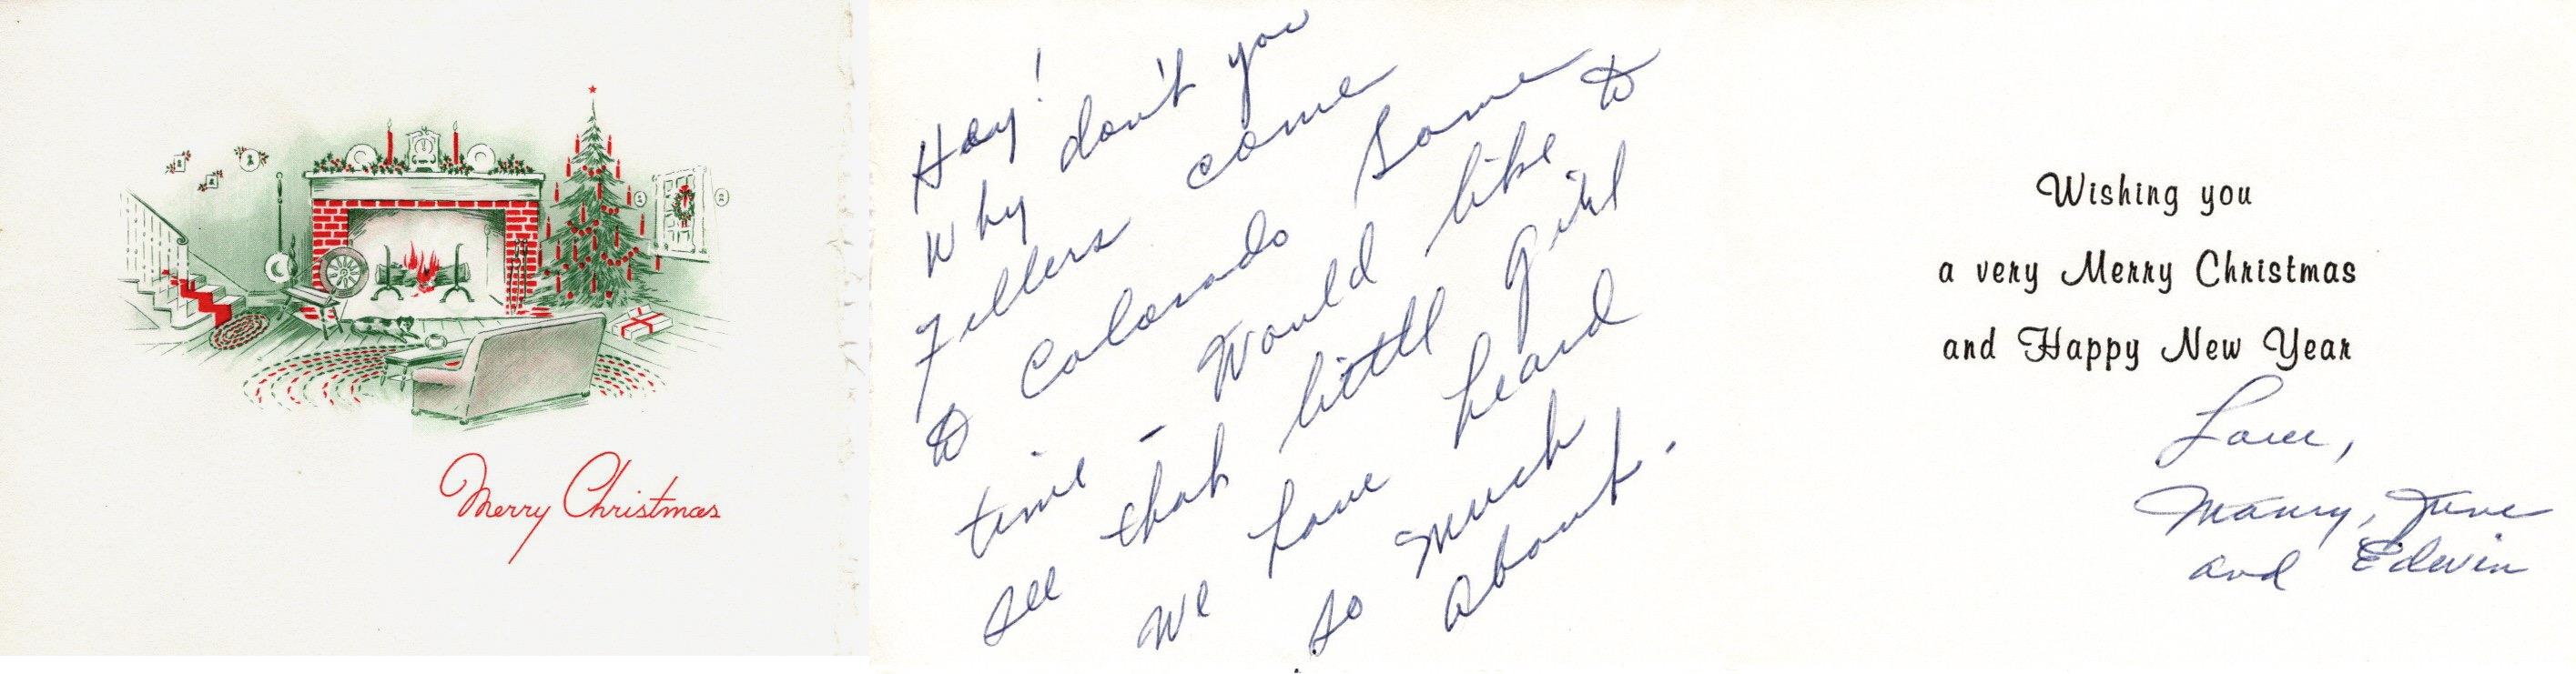 Merry Christmas
Hey!
Why don't you
Fellers come
to Colorado Some
time - Would like to
see that little girl
We have heard
so much
about.
Wishing you
a very Merry Christmas
and Happy New Year
Love,
Maury, June
and Edwin